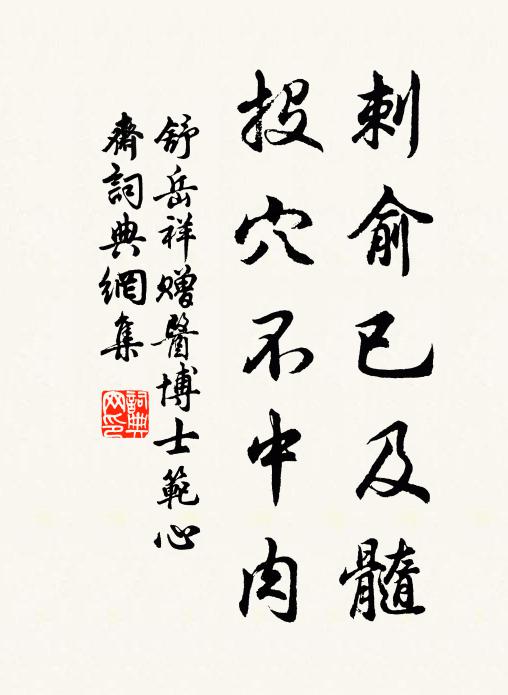 刺俞已及髓
投穴不中肉
舒岳祥贈醫博士範心
齋詞典網集
詞典
网印